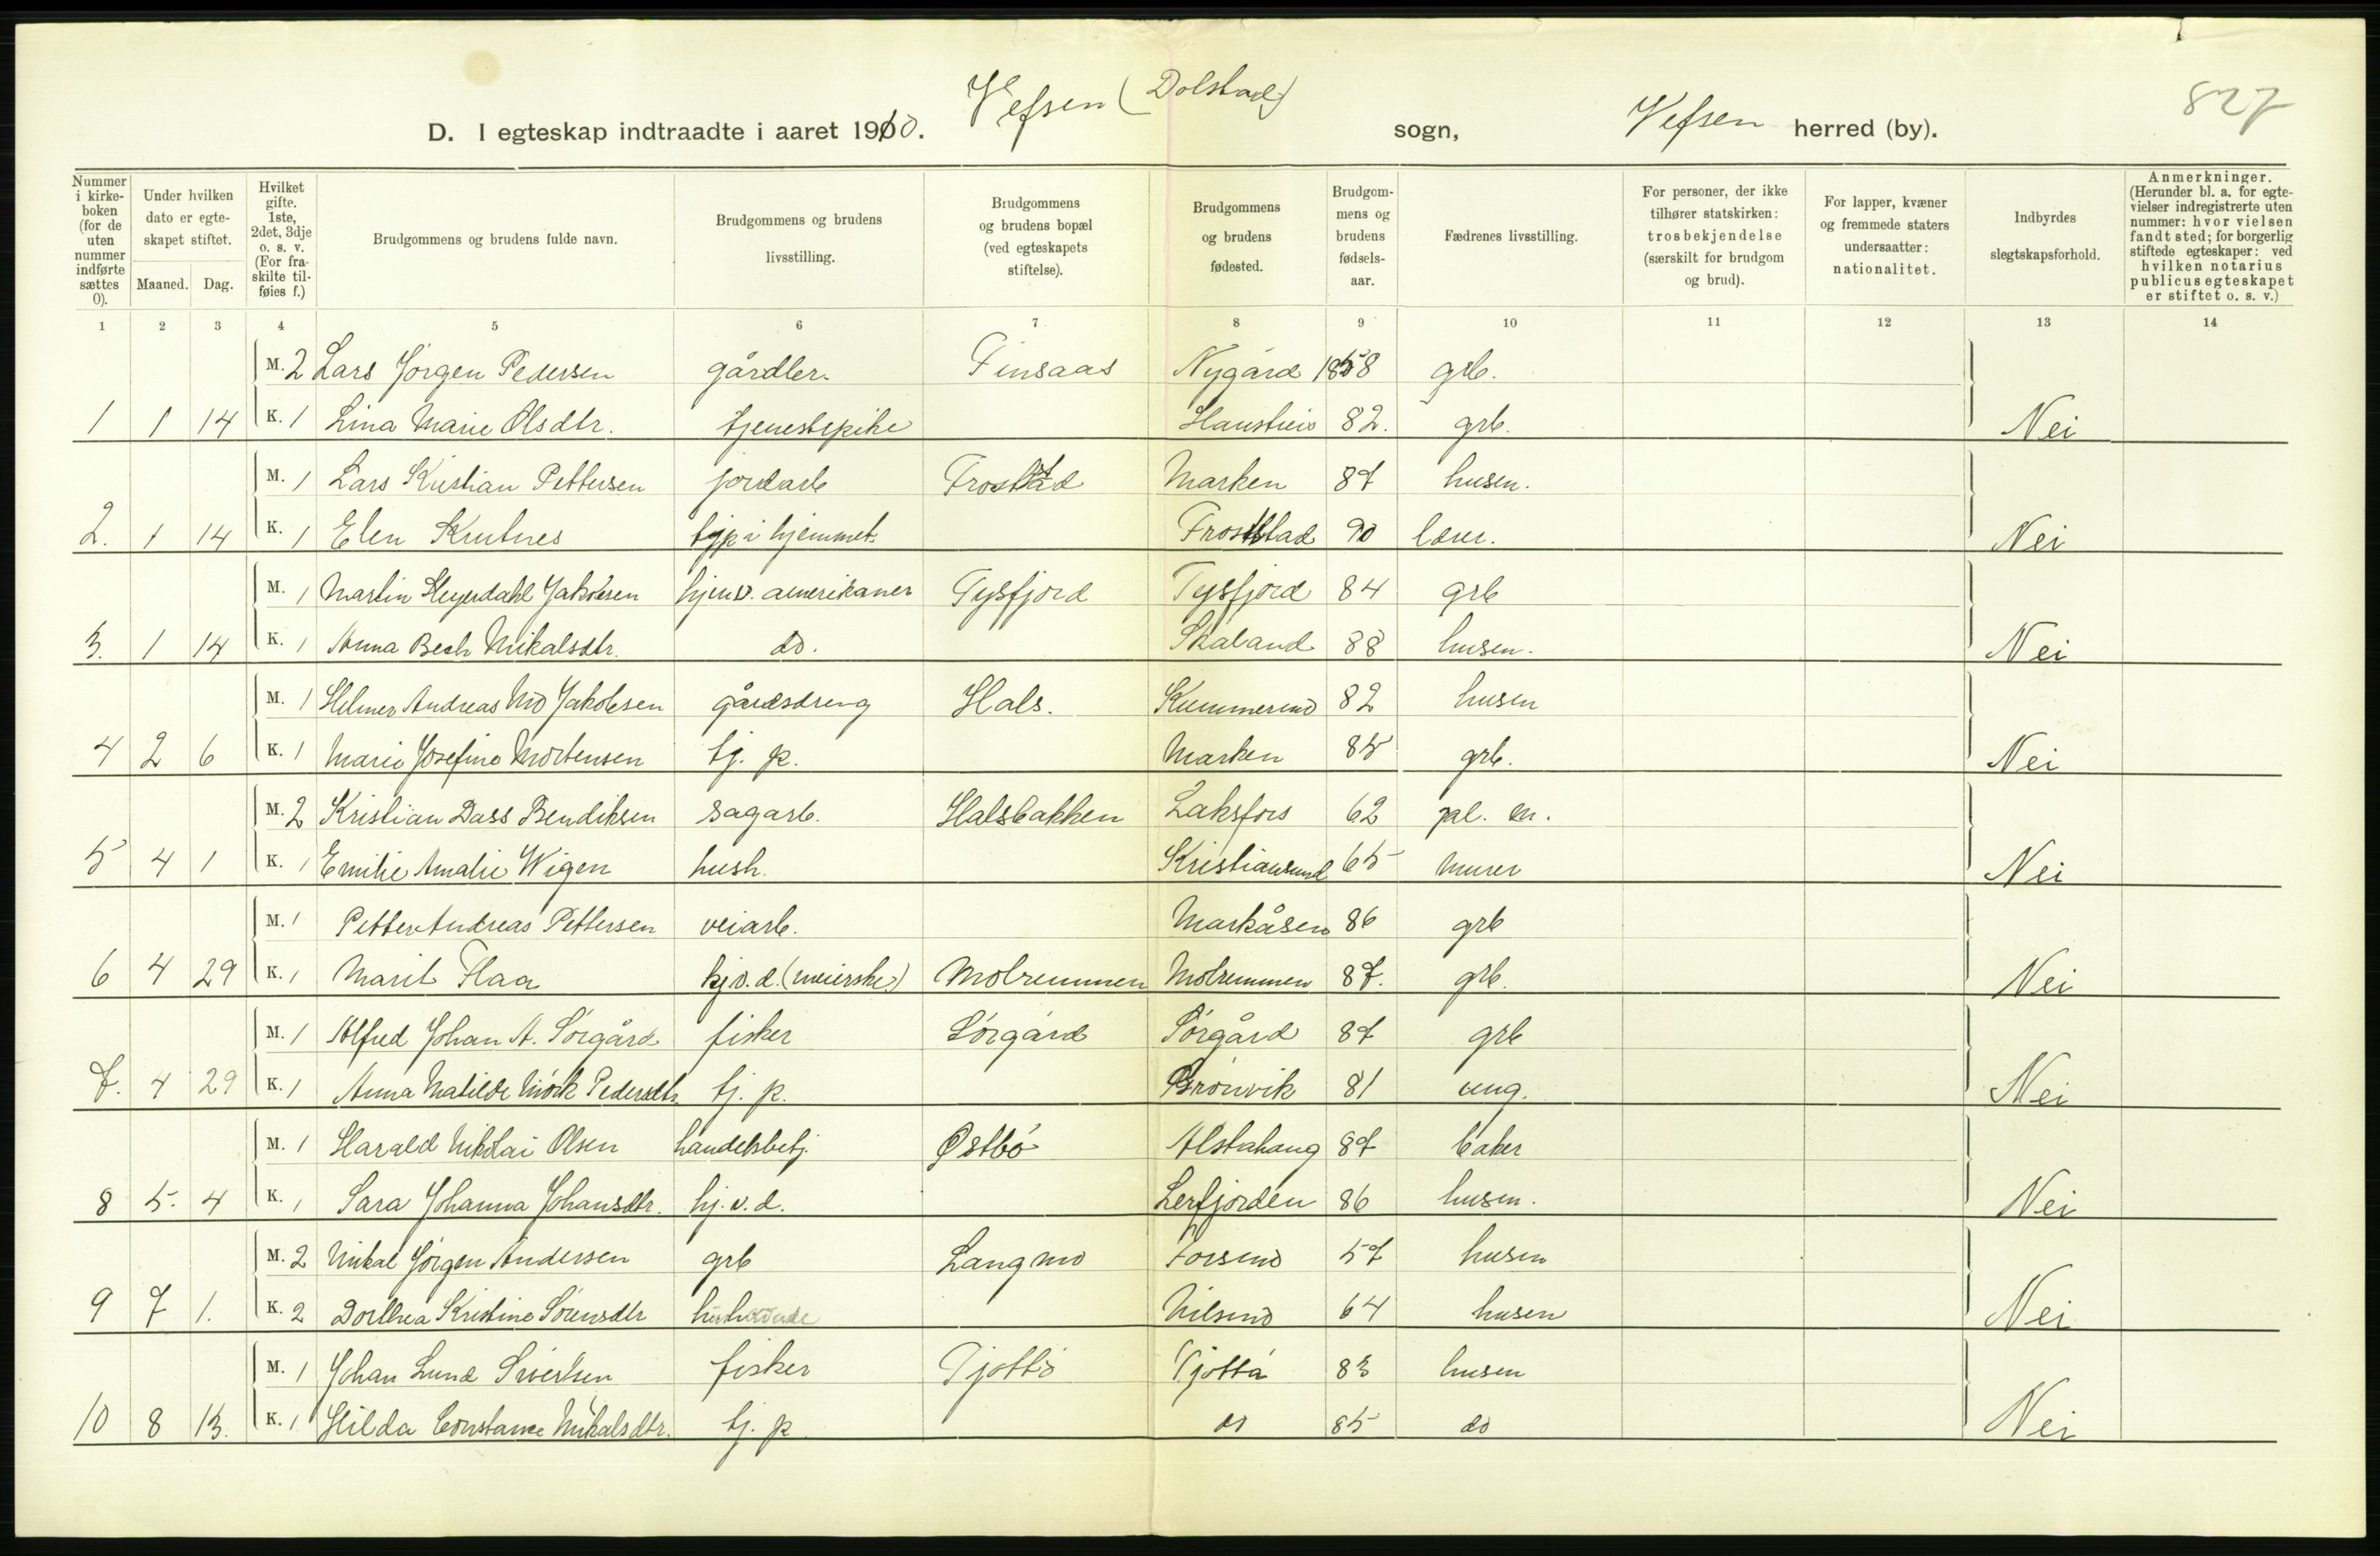 827
D. I egteskap indtraadte i aaret 1910. Vefsen (Dolstad) sogn, Vefsen herred (by).
Nummer i kirke-boken (for de uten nummer indførte sættes 0).
Under hvilken dato er egte-skapet stiftet.
Maaned. Dag.
Hvilket gifte. 1ste, 2det, 3dje o. s. v. (For fra-skilte til-føies f.)
Brudgommens og brudens fulde navn.
Brudgommens og brudens livsstilling.
Brudgommens og brudens bopæl (ved egteskapets stiftelse).
Brudgommens og brudens fødested.
Brudgom-mens og brudens fødsels-aar.
Fædrenes livsstilling.
For personer, der ikke tilhører statskirken: trosbekjendelse (særskilt for brudgom og brud).
For lapper, kvæner og fremmede staters undersaatter: nationalitet.
Indbyrdes slegtskapsforhold.
Anmerkninger. (Herunder bl. a. for egte-vielser indregistrerte uten nummer: hvor vielsen fandt sted; for borgerlig stiftede egteskaper: ved hvilken notarius publicus egteskapet er stiftet o. s. v.)
1 2 3 4 5 6 7 8 9 10 11 12 13 14
M. 2 Lars Jørgen Pedersen gårdbr. Finsaas Nygård 1858 grb.
1 1 14 K. 1 Lina Marie Olsdtr. tjenestepike 82. grb. Nei
M. 1 Lars Kristian Pettersen jordarb Marken 87 husen.
2. 1 14 K. 1 Elen Krutnes tjp i hjemmet. 90 lærer. Nei
M. 1 Martin Heyerdahl Jakobsen hjemv. amerikaner Tysfjord Tysfjord 84 grb
3. 1 14 K. 1 Anna Bech Mikalsdtr. do. Skaland 88 husen. Nei
M. 1 Hilmer Andreas Mo Jakobsen gårdsdreng Hals. Kummermo 82 husen
4 2 6 K. 1 Marie Josefine Mortensen tj. p. Marken 85 grb. Nei
M. 2 Kristian Dass Bendiksen sagarb. Halsbakken Laksfors 62 pl. m.
5 4 1 K. 1 Emilie Amalie Wigen hush. Kristiansund 65 murer Nei
M. 1 Petter Andreas Pettersen veiarb. Markåsen 86 grb
6 4 29 K. 1 Marit Flaa hj. v. d. (meierske) Molremmen Molremmen 87. grb. Nei
M. 1 Alfred Johan A. Sørgård fisker Sørgård Sørgård 87 grb
7. 4 29 K. 1 Anna Matilde Mørk Pedersdtr tj. p. Grønvik 81 ung. Nei
M. 1 Harald Nikolai Olsen handelsbetj. Østbø Alstahaug 87 baker
8 5. 4 K. 1 Sara Johanna Johansdtr. hj. v. d. Lerfjorden 86 husen. Nei
M. 2 Mikal Jørgen Andersen grb Langmo Forsmo 57 husen
9 7 1. K. 2 Dorthea Kristine Sørensdtr Nilsmo 64 husen Nei
M. 1 Johan Lund Sivertsen fisker Tjøttø Tjøtta 83 husen
10 8 13. K. 1 Hilda Constance Mikalsdtr. tj. p do 85 do Nei